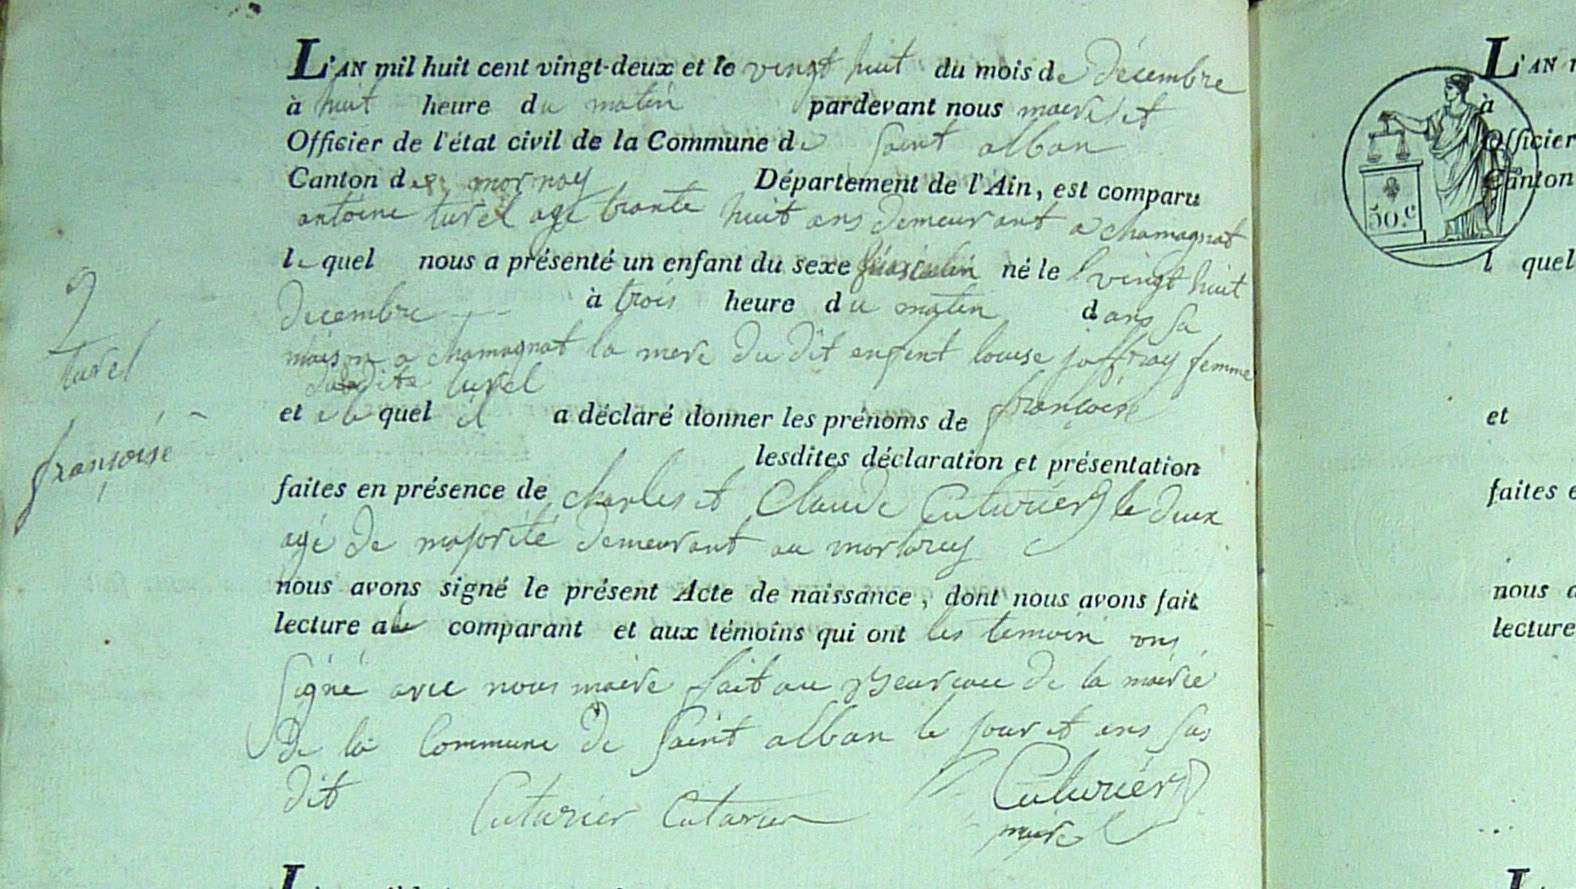 L'AN mil huit cent vingt-deux et le vingt huit du mois de décembre
à huit heure du matin pardevant nous maire et
Officier de l'état civil de la Commune de Saint alban
Canton de mornay Département de l'Ain, est comparu
antoine turel agé trante huit ans demeurant a chamagnat
le quel nous a présenté un enfant du sexe né le vingt huit
decembre à trois heure du matin dans sa
maison a chamagnat la mere du dit enfent louise joffray femme
dudite turel
et a la quel il a déclaré donner les prénoms de françoise
lesdites déclaration et présentation
faites en présence de charles et Claude Cuturier le deux
agé de majorité demeurant au mortarey
nous avons signé le présent Acte de naissance, dont nous avons fait
lecture au comparant et aux témoins qui ont les temoin ons
Signé avec nous maire fait au Beureau de la mairie
De la Commune de Saint alban le jour et ans sus
dit
Cuturier Cuturier Cuturier
maire
turel
françoise
L'AN
à
Officier
Canton
50.c
l quel
et
faites e
nous a
lecture